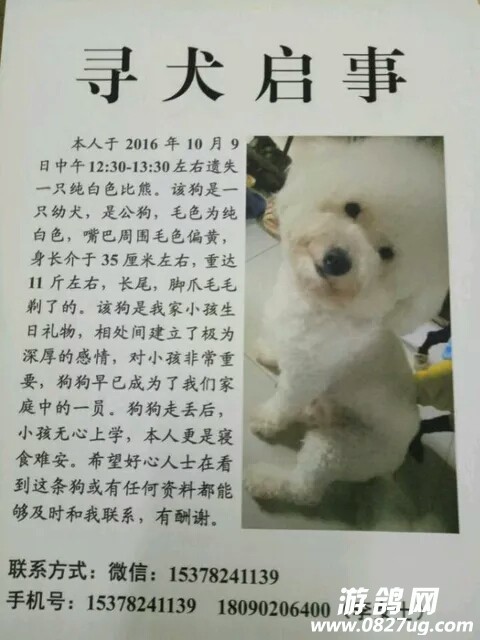 寻犬启事
本人于 2016 年 10 月 9
日中午 12:30-13:30 左右遗失
一只纯白色比熊。该狗是一
只幼犬，是公狗，毛色为纯
白色，嘴巴周围毛色偏黄，
身长介于 35 厘米左右，重达
11 斤左右，长尾，脚爪毛毛
剃了的。该狗是我家小孩生
日礼物，相处间建立了极为
深厚的感情，对小孩非常重
要，狗狗早已成为了我们家
庭中的一员。狗狗走丢后，
小孩无心上学，本人更是寝
食难安。希望好心人士在看
到这条狗或有任何资料都能
够及时和我联系，有酬谢。
联系方式：微信：15378241139
手机号：15378241139 18090206400
游鸽网
www.0827ug.com